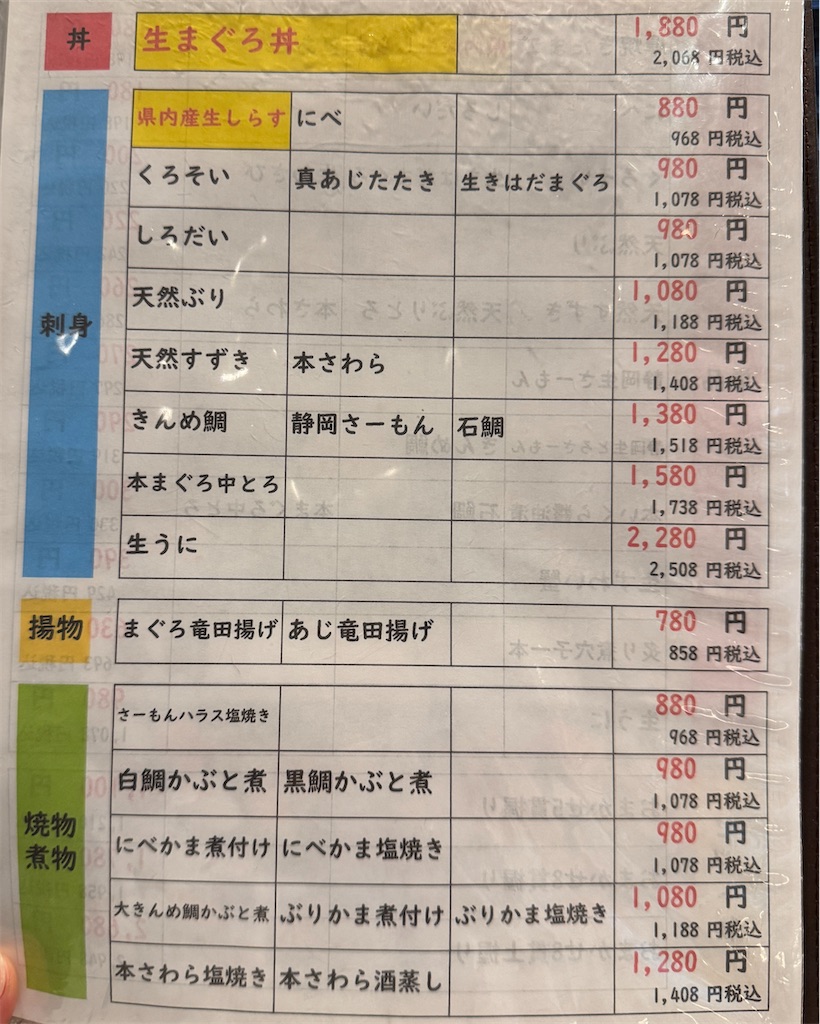 丼
生まぐろ丼 1,880 円
2,068 円税込
刺身
県内産生しらす にべ 880 円
968 円税込
くろそい 真あじたたき 生きはだまぐろ 980 円
1,078 円税込
しろだい 980 円
1,078 円税込
天然ぶり 1,080 円
1,188 円税込
天然すずき 本さわら 1,280 円
1,408 円税込
きんめ鯛 静岡さーもん 石鯛 1,380 円
1,518 円税込
本まぐろ中とろ 1,580 円
1,738 円税込
生うに 2,280 円
2,508 円税込
揚物
まぐろ竜田揚げ あじ竜田揚げ 780 円
858 円税込
焼物
煮物
さーもんハラス塩焼き 880 円
968 円税込
白鯛かぶと煮 黒鯛かぶと煮 980 円
1,078 円税込
にべかま煮付け にべかま塩焼き 980 円
1,078 円税込
大きんめ鯛かぶと煮 ぶりかま煮付け ぶりかま塩焼き 1,080 円
1,188 円税込
本さわら塩焼き 本さわら酒蒸し 1,280 円
1,408 円税込